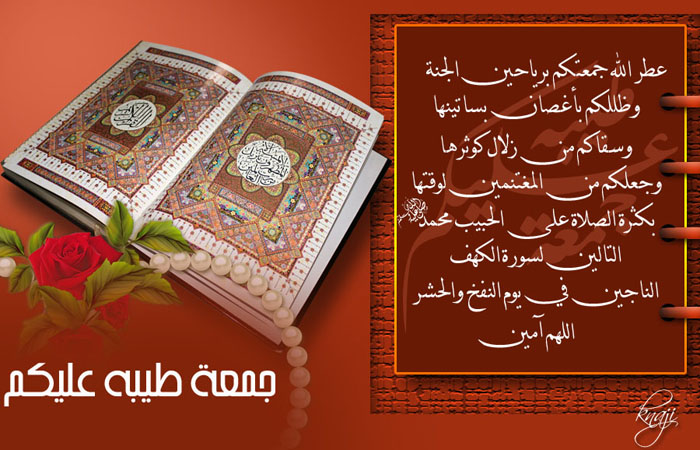 عطر الله جمعتكم برياحين الجنة
وظللكم بأغصان بساتينها
وسقاكم من زلال كوثرها
وجعلكم من المغتنمين لوقتها
بكثرة الصلاة على الحبيب محمد
التالين لسورة الكهف
الناجين في يوم النفخ والحشر
اللهم آمين
جمعة طيبه عليكم
knaji